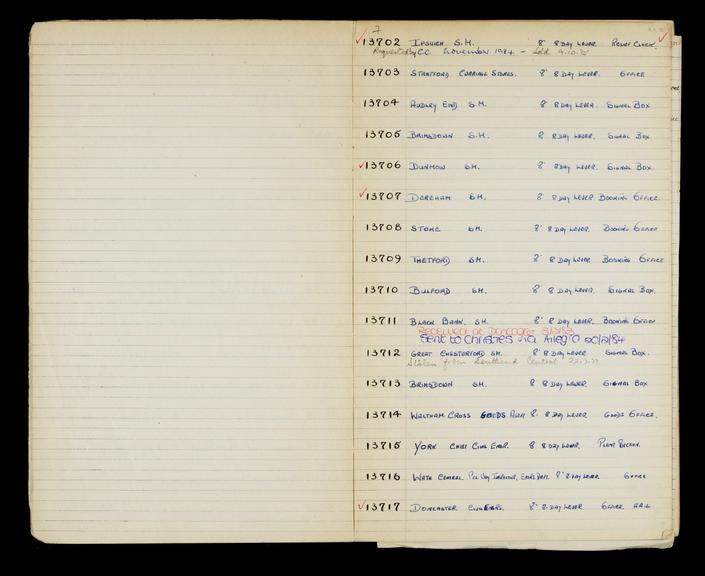 7
13702 IPSWICH S.M. 8" 8 DAY LEVER RELIEF CLERK
Requested by CC November 1974 - Sold 9.10.75
13703 STRATFORD CARRIAGE STORES. 8" 8 DAY LEVER. OFFICE
13704 AUDLEY END S.M. 8" 8 DAY LEVER. SIGNAL BOX
13705 BRIMSDOWN S.M. 8 8 DAY LEVER. SIGNAL BOX
13706 DUNMOW S.M. 8" 8 DAY LEVER SIGNAL BOX
13707 DEREHAM S.M. 8" 8 DAY LEVER BOOKING OFFICE.
13708 STOKE S.M. 8" 8 DAY LEVER. BOOKING OFFICE
13709 THETFORD S.M. 8" 8 DAY LEVER BOOKING OFFICE
13710 BULFORD S.M. 8" 8 DAY LEVER. SIGNAL BOX.
13711 BLACK BANK. S.M. 8" 8 DAY LEVER. BOOKING OFFICE
RECEIVED AT DONCASTER
Sent to Christies via Allegro 20/2/84
13712 GREAT CHESTERFORD S.M. 8" 8 DAY LEVER. SIGNAL BOX.
Stolen from Southend Central 22.3.77
13713 BRIMSDOWN S.M. 8 8 DAY LEVER SIGNAL BOX
13714 WALTHAM CROSS GOODS AGENT 8. 8 DAY LEVER GOODS OFFICE.
13715 YORK CHIEF CIVIL ENGR. 8 8 DAY LEVER.
13716 WATH CENTRAL. P. WAY INSPECTOR, ENGRS DEPT. 8" 8 DAY LEVER OFFICE
13717 DONCASTER CIVIL ENGRS. 8" 8 DAY LEVER OFFICE